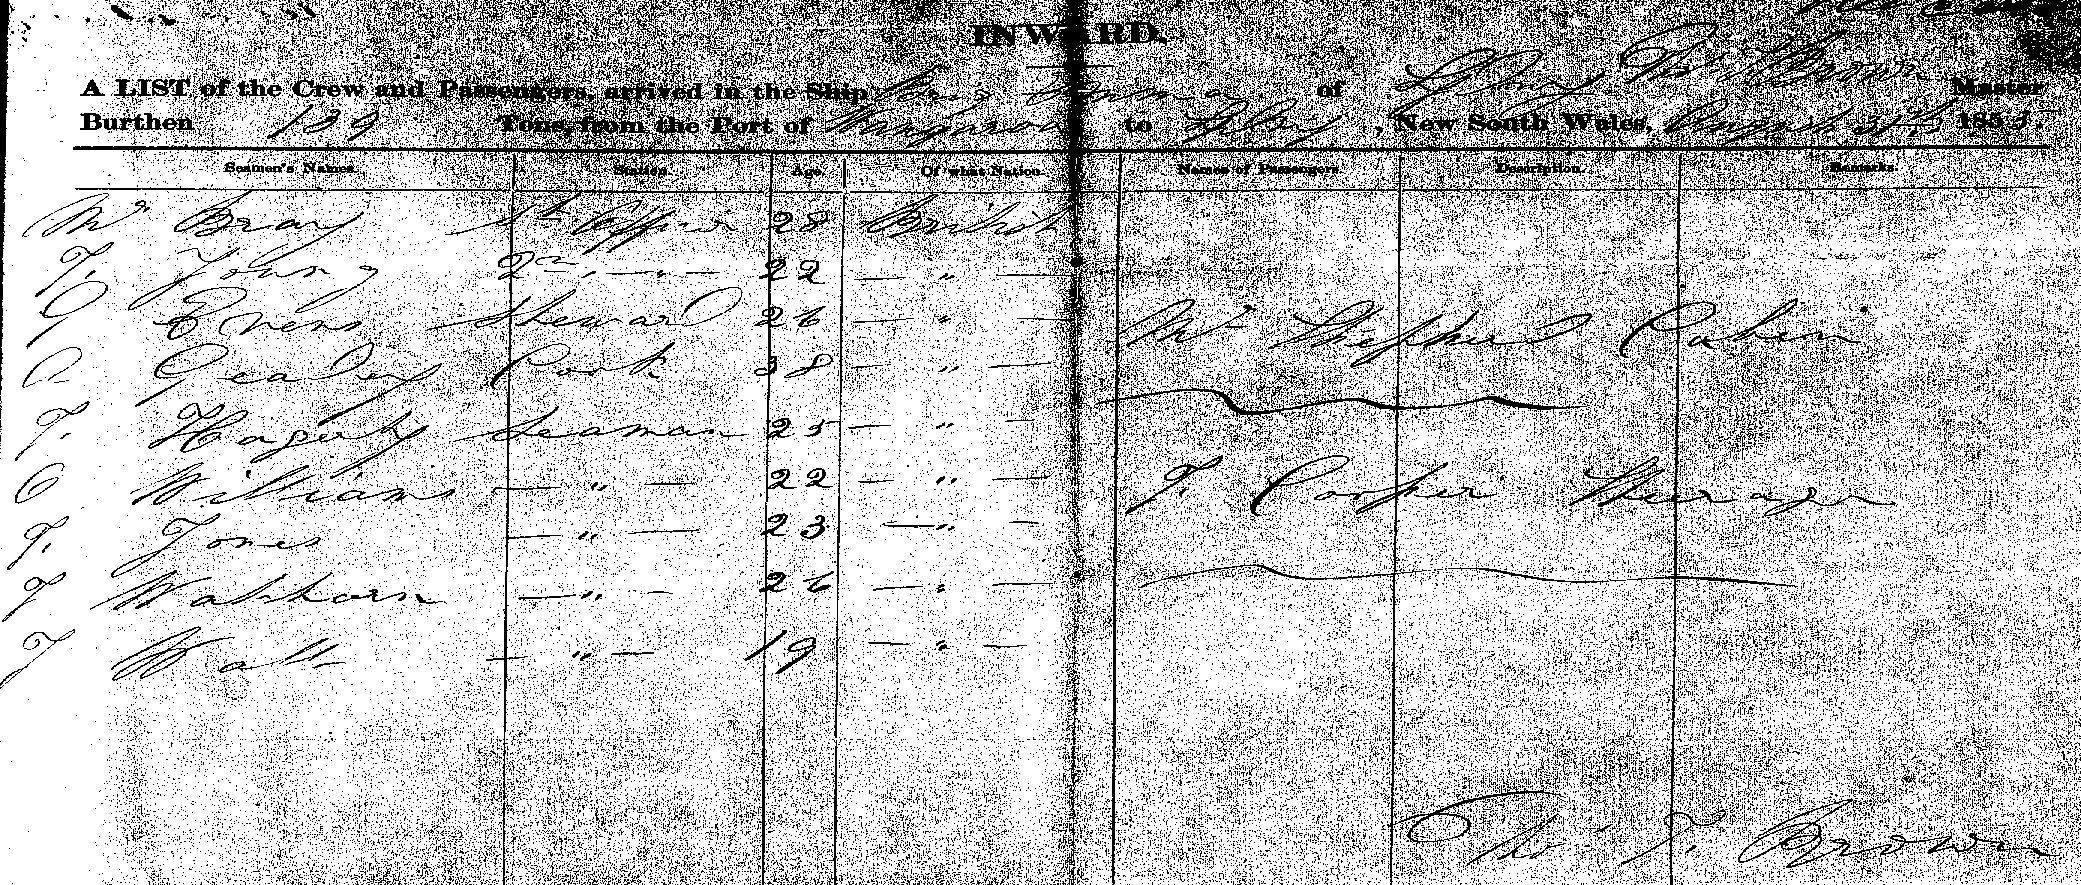 INWARD.
A LIST of the Crew and Passengers, arrived in the Ship of Sydney Brown Master
Burthen 139 Tons, from the Port of to Sydney, New South Wales, August 31st 185
Seamen's Names. Station. Age. Of what Nation. Names of Passengers Description. Remarks.
Mr Bray 1st Officer 28 British
T. Young 2nd " 22 "
Evens Steward 26 "
Mr Shepherd Cabin
Cook 38 "
T. Hagerty Seaman 25 "
C Williams " 22 "
T. Cooper Steerage
T. Jones " 23 "
" 26 "
T Watt " 19 "
Thos T. Brown